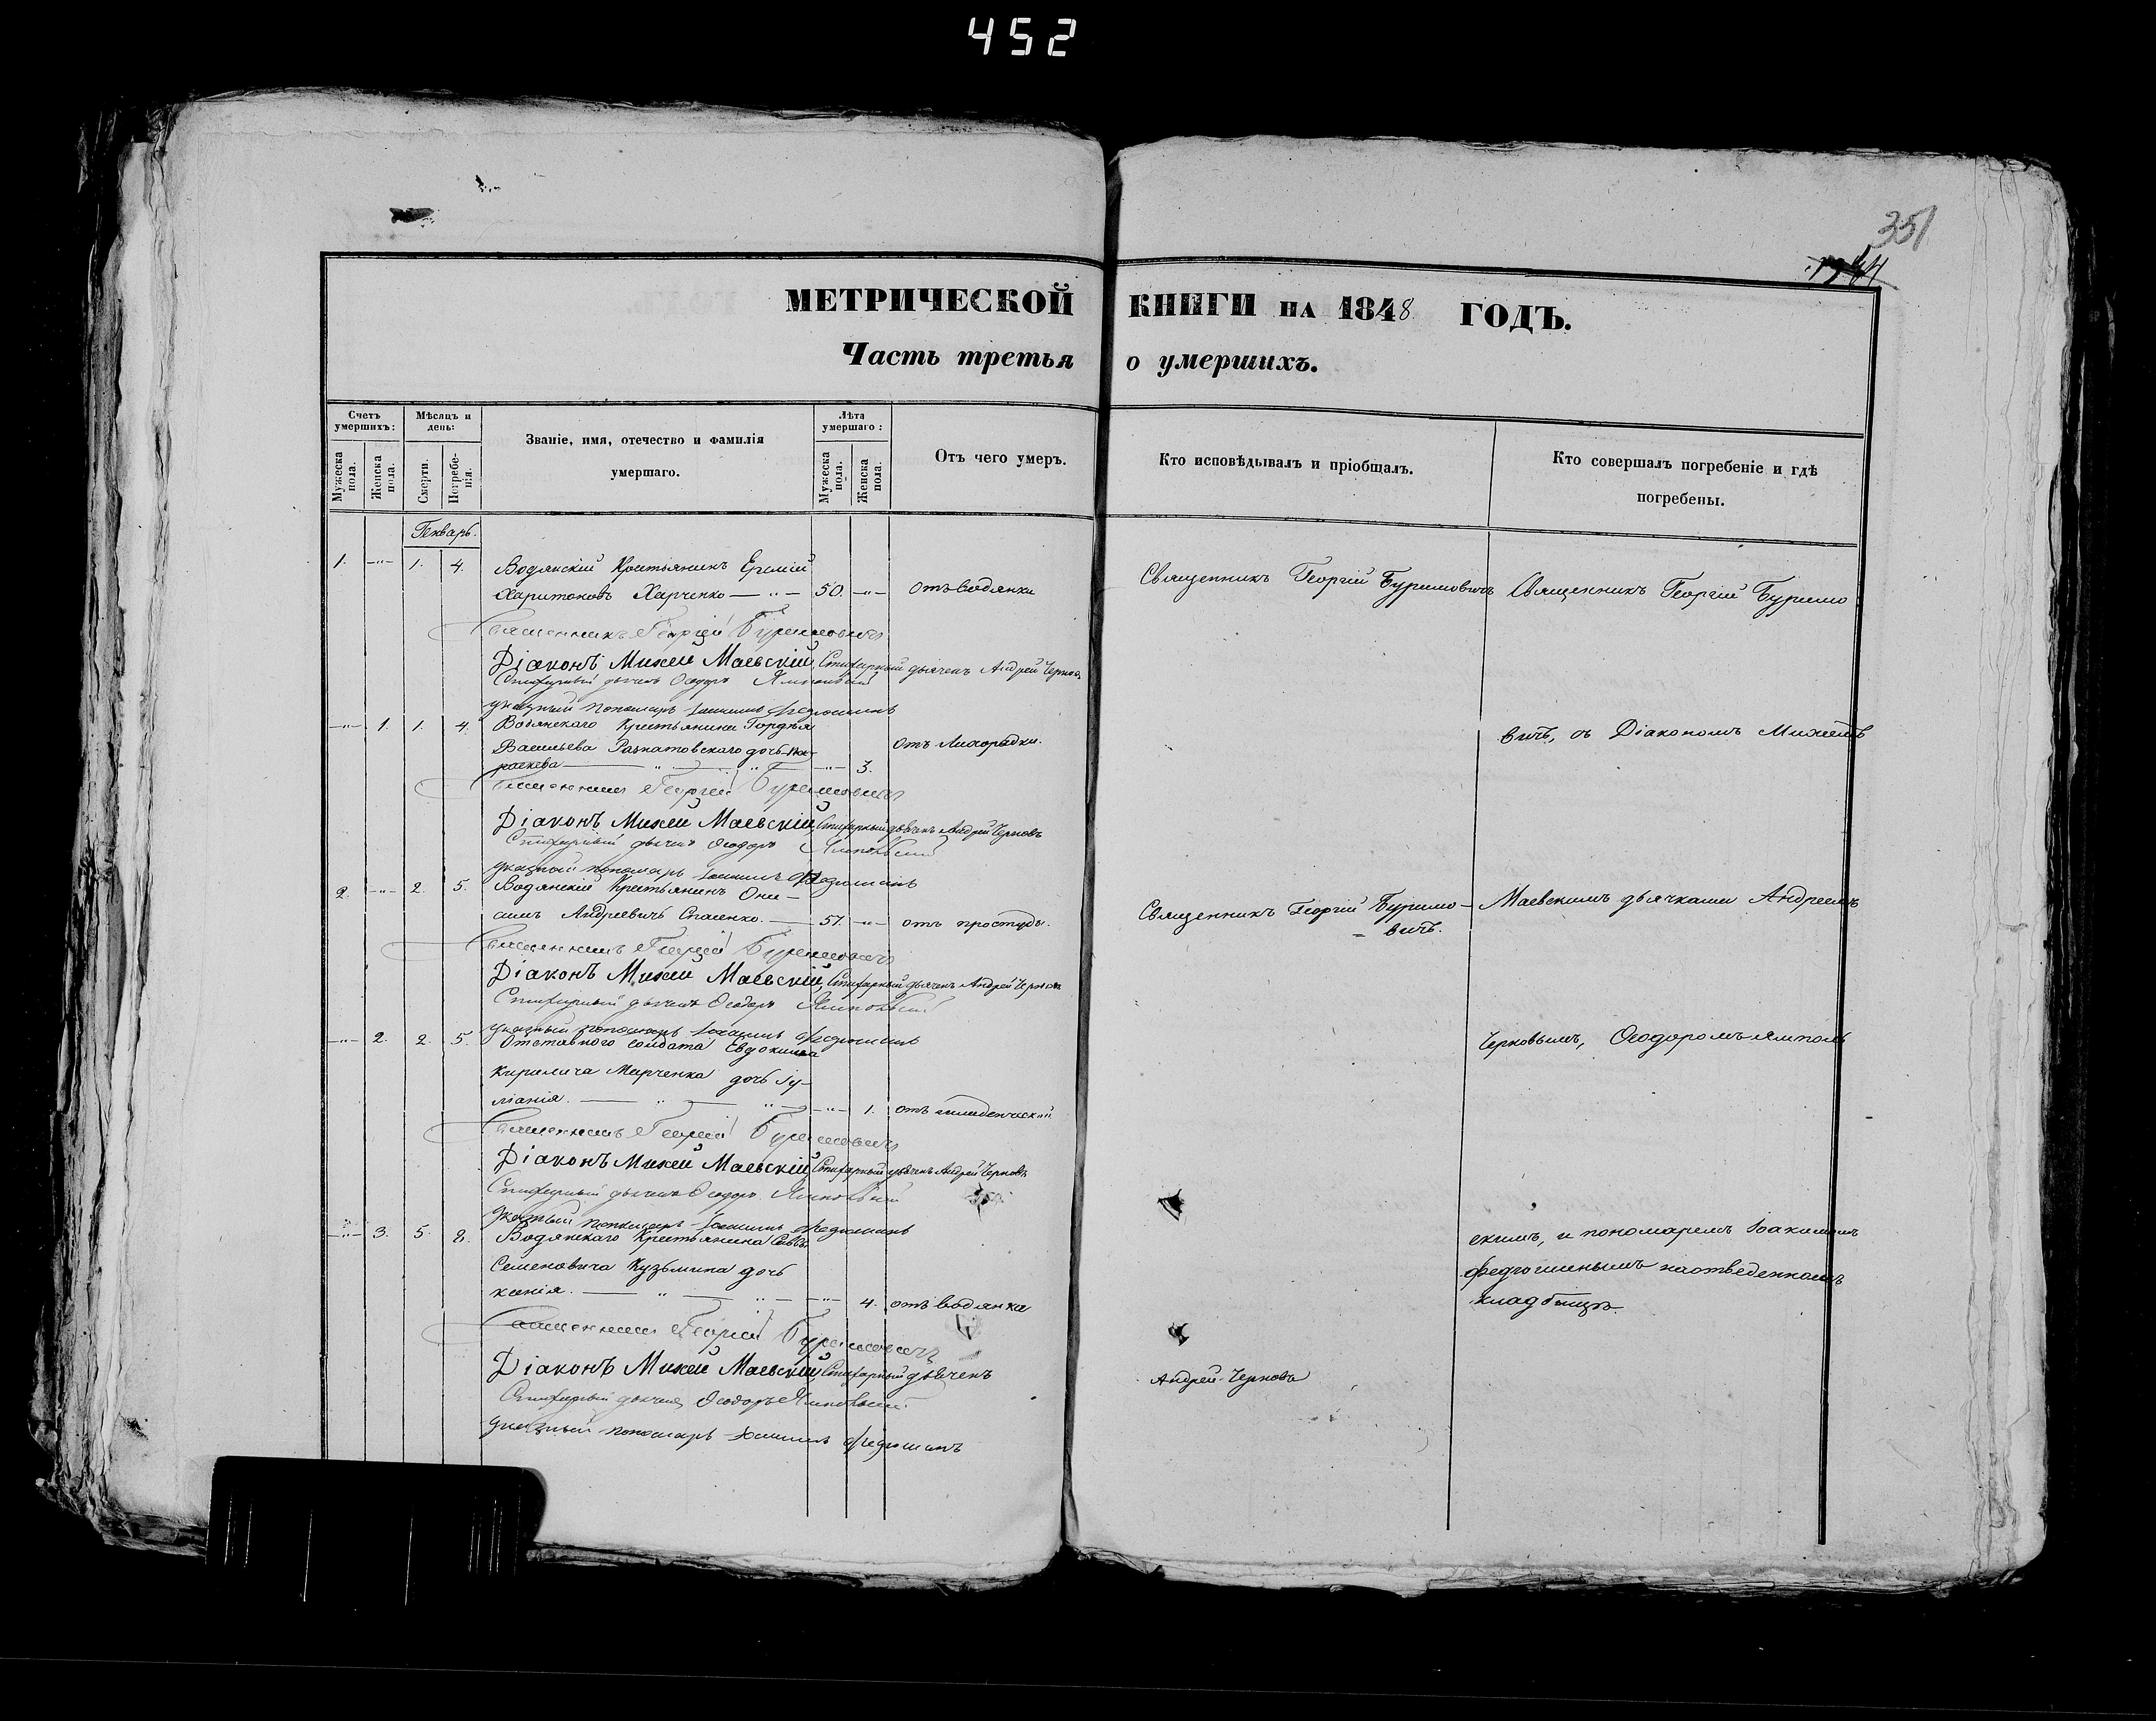 452
351
МЕТРИЧЕСКОЙ КНИГИ НА 1848 ГОДЪ.
Часть третья о умершихъ.
Счетъ умершихъ:
Мужеска пола.
Женска пола.
Мѣсяцъ и день:
Смерти.
Погребенія.
Званіе, имя, отечество и фамилія
умершаго.
Лѣта умершаго:
Мужеска пола.
Женска пола.
Отъ чего умеръ.
Кто исповѣдывалъ и пріобщалъ.
Кто совершалъ погребеніе и гдѣ
погребены.
Генварь.
1. -"- 1. 4. Водянскій Крестьянинъ Еремій
Харитоновъ Харченко — " — 50. -"- Отъ водянки
Священникъ Георгій Буримовичъ
Священникъ Георгій Буримо
Священникъ Георгій Буримовичъ
Діаконъ Михей Маевскій, Стихарный дьячекъ Андрей Черновъ
Стихарный дьячекъ Ѳеодоръ Ямпольскій
указный пономарь Іоакимъ Федюшинъ
-"- 1. 1. 4. Водянскаго Крестьянина Гордѣя
Васильева Разнатовскаго дочь Па-
раскева — " — " — -"- 3. отъ лихорадки.
вичъ, съ Діакономъ Михеемъ
Священникъ Георгій Буримовичъ
Діаконъ Михей Маевскій, Стихарный дьячекъ Андрей Черновъ
Стихарный дьячекъ Ѳеодоръ Ямпольскій
указный пономарь Іоакимъ Федюшинъ
2. -"- 2. 5. Водянскій Крестьянинъ Они-
симъ Андреевичъ Спасенко. — 57. -"- отъ простуды.
Священникъ Георгій Буримо-
- вичъ.
Маевскимъ дьячками Андреемъ
Священникъ Георгій Буримовичъ
Діаконъ Михей Маевскій, Стихарный дьячекъ Андрей Черновъ
Стихарный дьячекъ Ѳеодоръ Ямпольскій
указный пономарь Іоакимъ Федюшинъ
-"- 2. 2. 5. Отставного солдата Евдокима
Кирилича Марченка дочь Іу-
ліанія. — " — " — -"- 1. отъ младенческ
Черновымъ, Ѳеодоромъ Ямполь
Священникъ Георгій Буримовичъ
Діаконъ Михей Маевскій, Стихарный дьячекъ Андрей Черновъ
Стихарный дьячекъ Ѳеодоръ Ямпольскій
указный пономарь Іоакимъ Федюшинъ
-"- 3. 5. 8. Водянскаго Крестьянина Саввы
Семеновича Кузьмина дочь
ксенія. — " — " — -"- 4. отъ водянки
скимъ, и пономаремъ Іоакимомъ
Федюшинымъ на отведенномъ
кладбищѣ.
Священникъ Георгій Буримовичъ
Діаконъ Михей Маевскій, Стихарный дьячекъ
Андрей Черновъ
Стихарный дьячекъ Ѳеодоръ Ямпольскій
указный пономарь Іоакимъ Федюшинъ